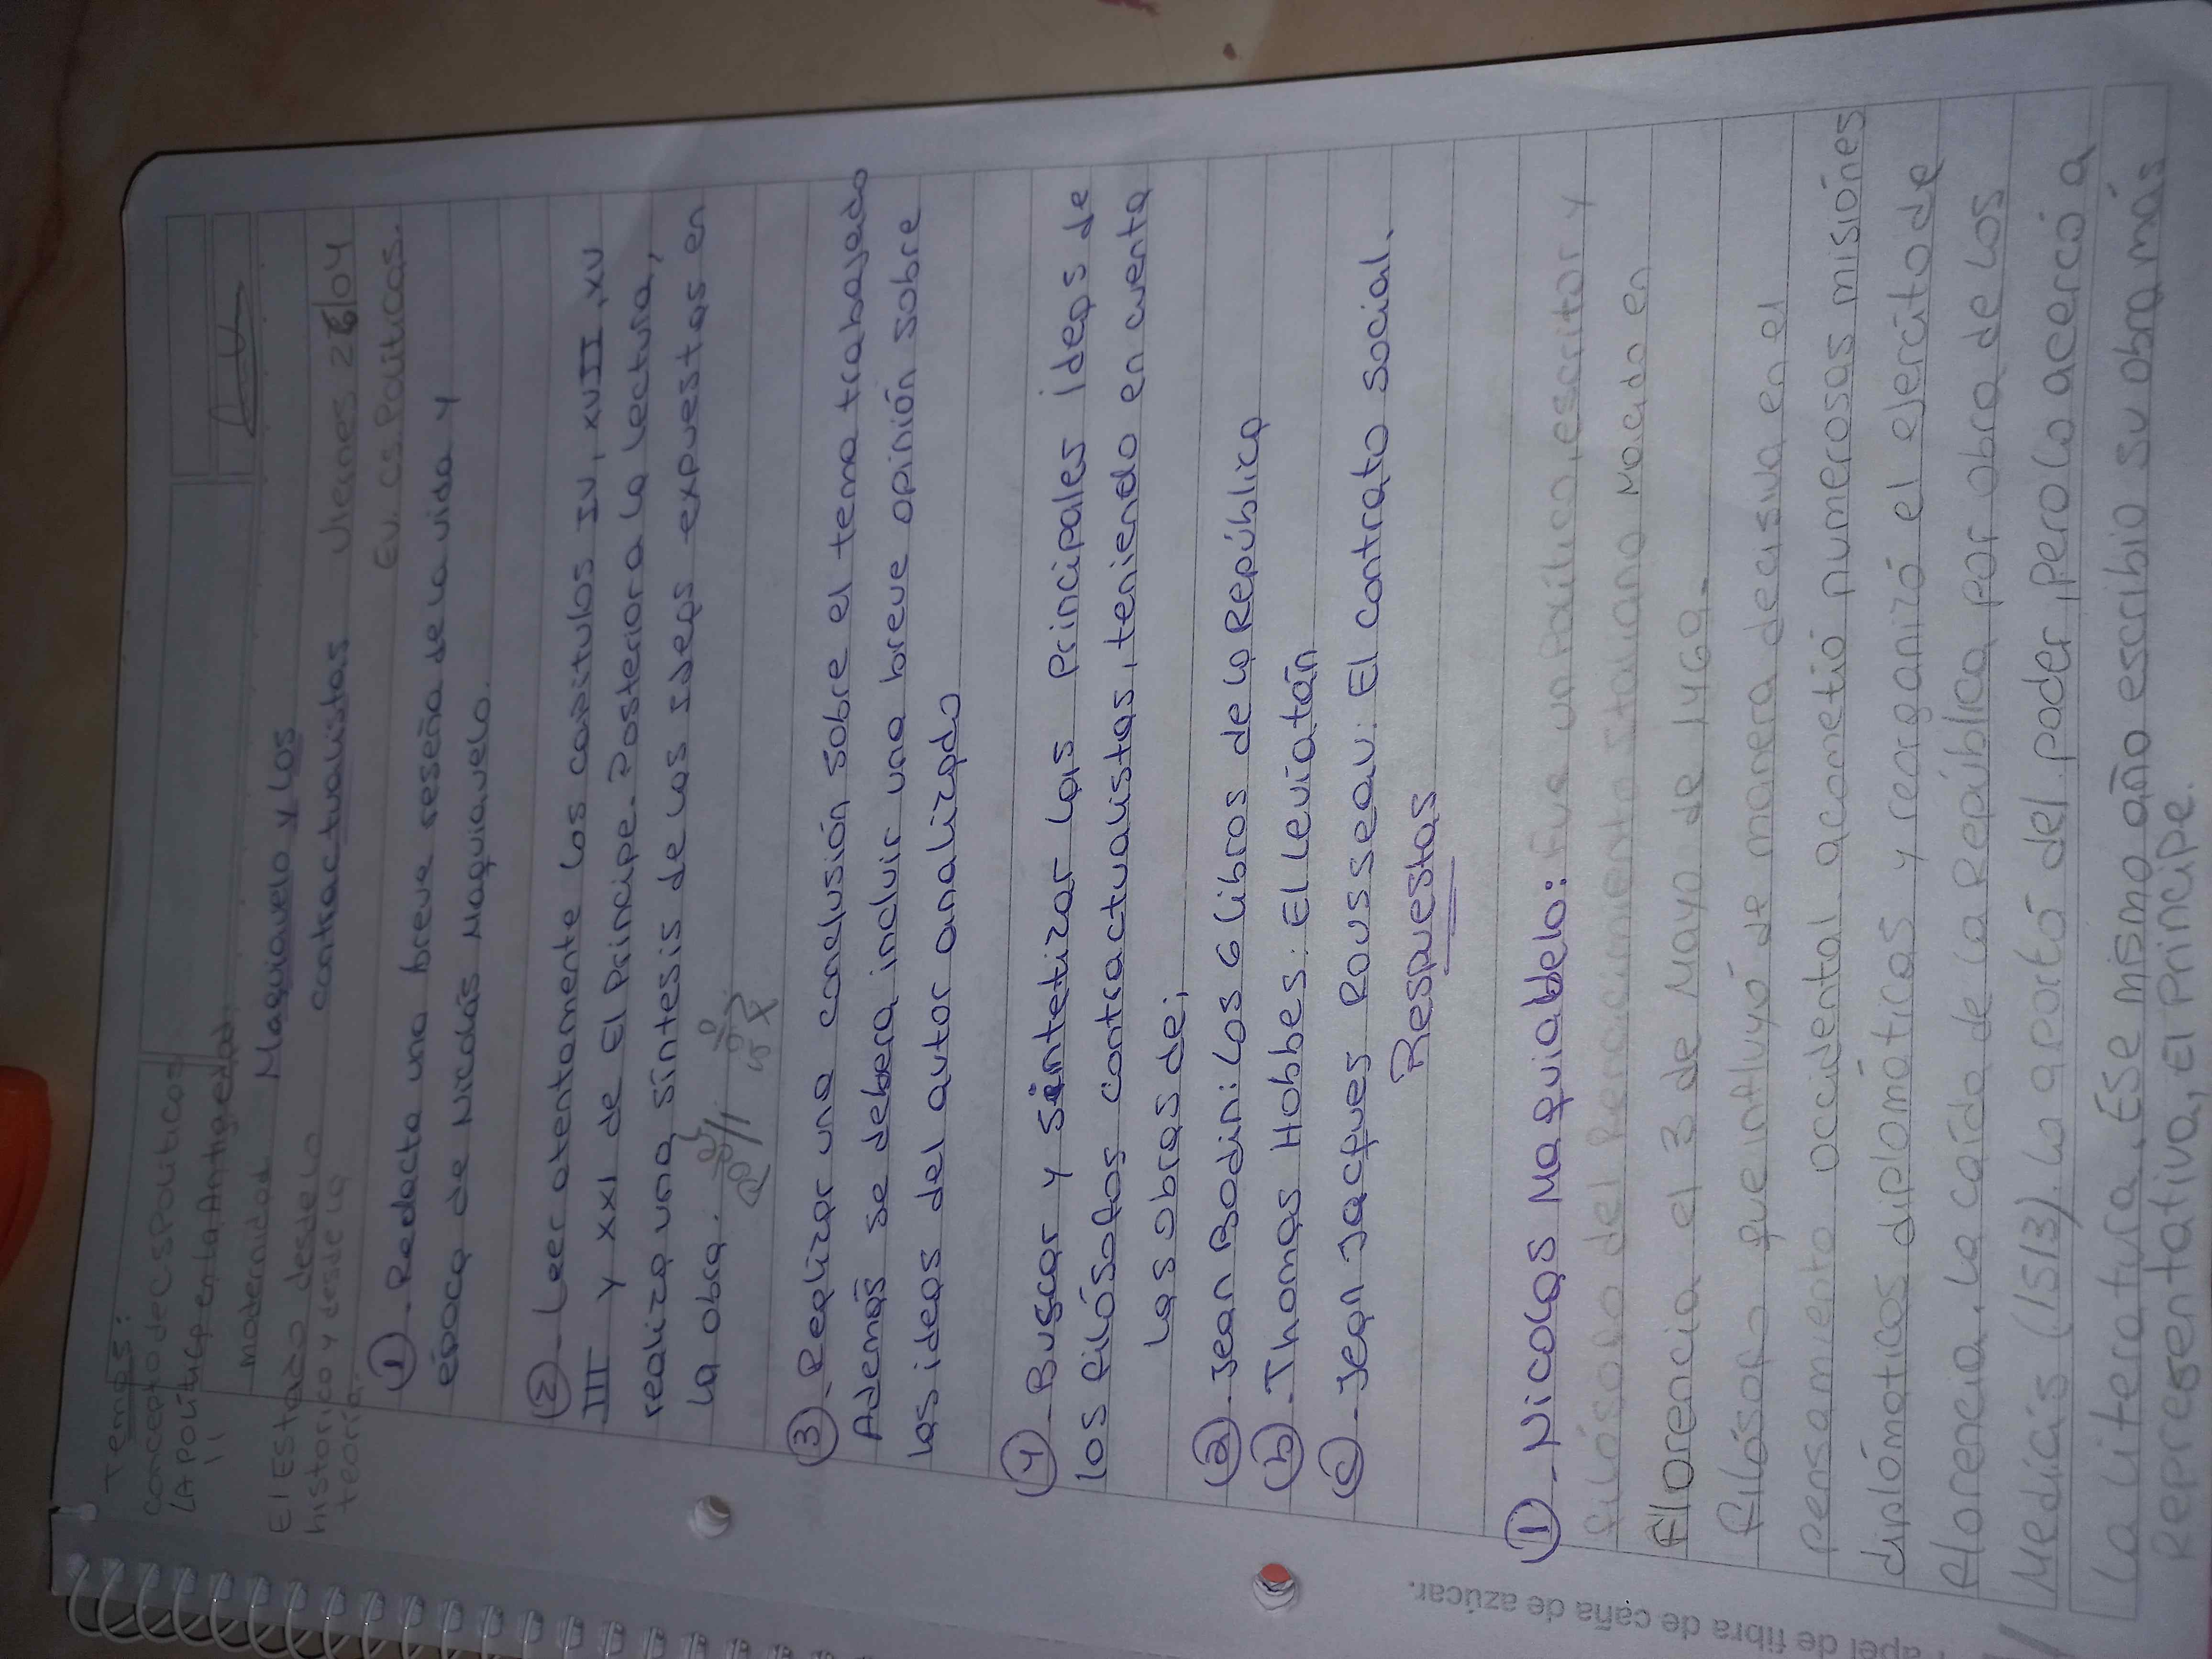 Temas:
concepto de Cs Políticas
LA política en la Antigedad.
" " modernidad
El Estado desde lo
historico y desde la
teoría.
Maquiavelo y Los
contractualistas
Viernes 28/04
Ev. Cs. Políticas.
①-Redacta una breve reseña de la vida y
época de Nicolás Maquiavelo.
②-Leer atentamente los capitulos IV, XVII, XV
III y XXI de El Principe. Posterior a la lectura,
realiza una síntesis de las ideas expuestas en
la obra.
③-Realizar una conclusión sobre el tema trabajado
Además se debera incluir una breve opinión sobre
las ideas del autor analizado
④-Buscar y sintetizar las principales ideas de
los filósofos contractualistas, teniendo en cuenta
las obras de:
ⓐ-Jean Bodin: Los 6 libros de la República
ⓑ-Thomas Hobbes: El leviatán
ⓒ-Jean Jacques Rousseau: El contrato social.
Respuestas
①-Nicolas Maquiabelo: Fue un Político, escritor y
filósofo del Renacimiento italiano Nacido en
Florencia el 3 de Mayo de 1469.
Filósofo que influyó de manera decisiva en el
pensamiento occidental acometió numerosas misiónes
diplómáticas diplomáticas y reorganizó el ejercito de
Florencia. La caída de la República por obra de los
Medicis (1513). Lo apartó del poder, pero lo acercó a
la literatura. Ese mismo año escribio su obra más
Representativa, El Principe.
Papel de fibra de caña de azúcar.